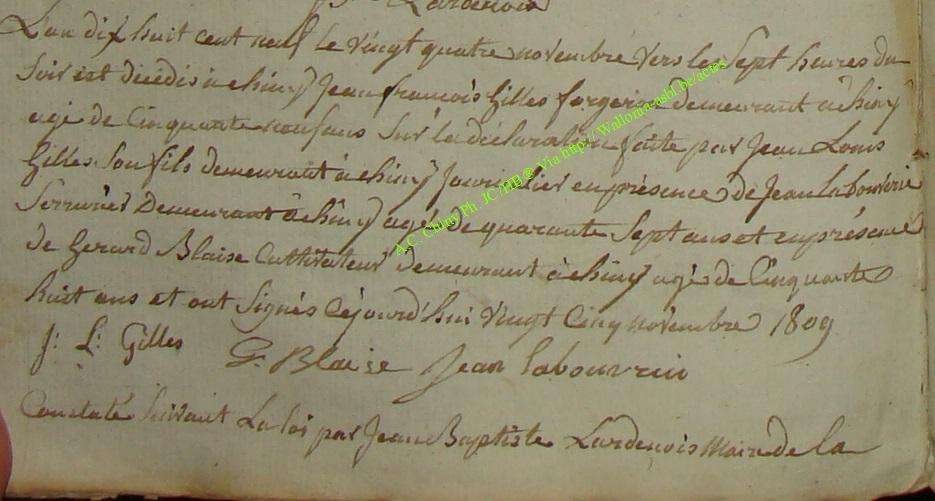 Lardenois
L'an dix huit cent neuf le vingt quatre novembre vers les Sept heures du
Soir est décédés à chiny Jean françois Gilles forgeron demeurant à chiny
agé de Cinquante neuf ans Sur la déclaration faite par Jean Louis
Gilles Son fils demeurant à chiny Journalier en présence de Jean labouverie
Serrurier Demeurant à chiny agé de quarante Sept ans et en présence
de Gerard Blaise Cultivateur demeurant à chiny agé de Cinquante
huit ans et ont Signés Cejourd'hui Vingt Cinq novembre 1809
J: L: Gilles G. Blaise Jean labouvrie
Constaté Suivant La loi par Jean Baptiste Lardenois Maire de la
A.C. Chiny Ph. JC/HB @ Via http:// Wallonia-asbl.be/actes